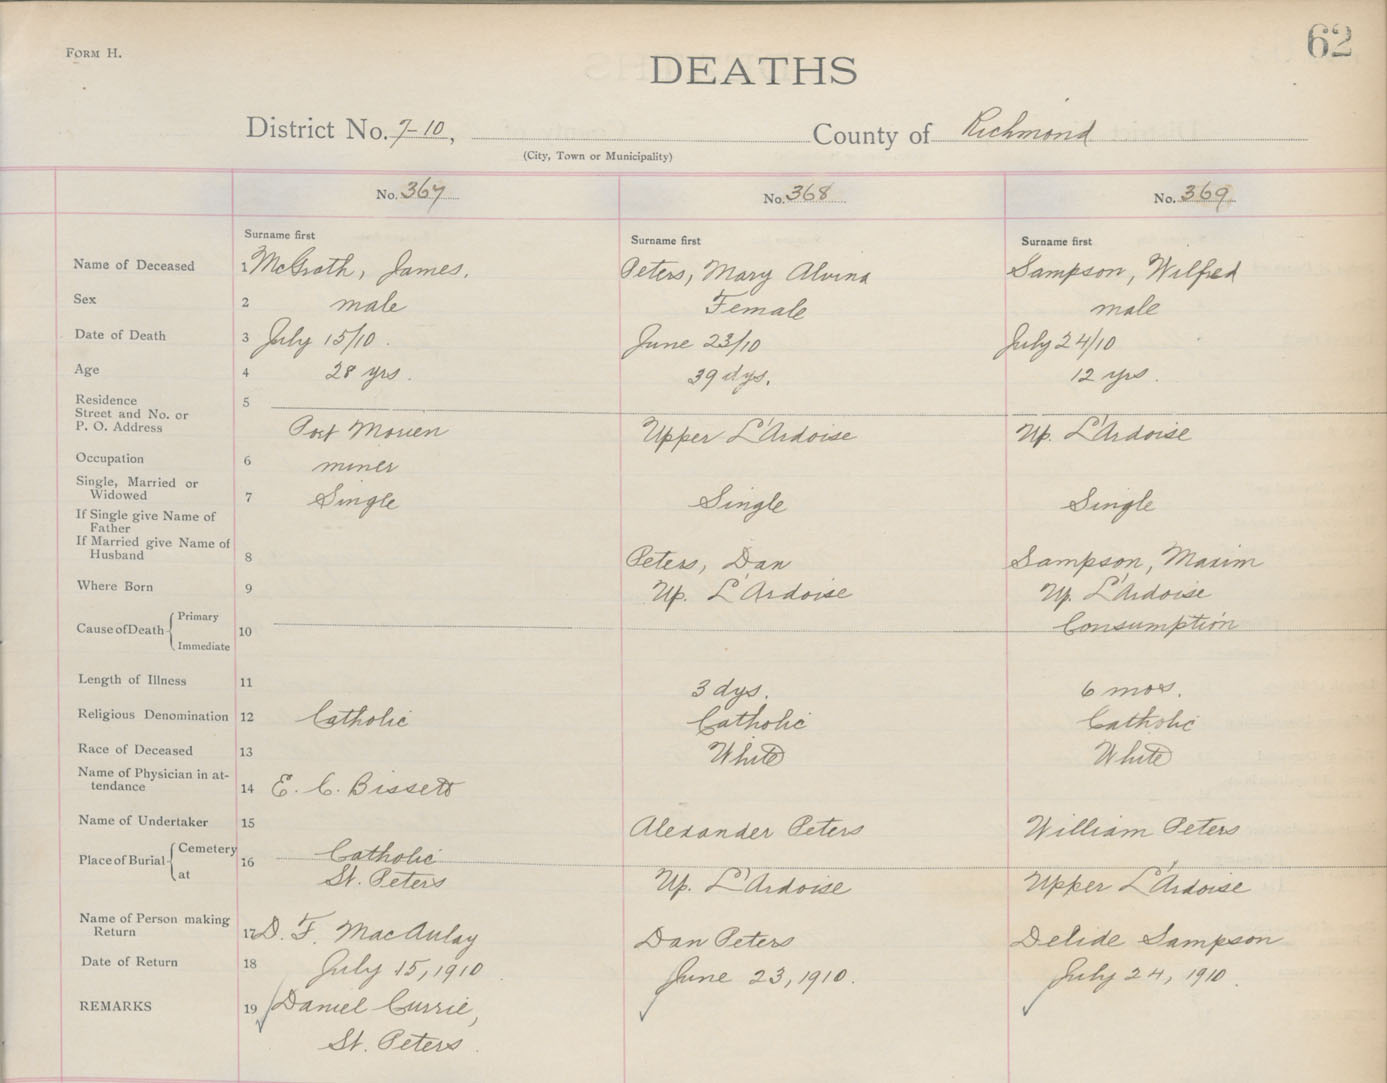 62
FORM H.
DEATHS
District No. 7-10, County of Richmond
(City, Town or Municipality)
No. 367 No. 368 No. 369
Surname first Surname first Surname first
Name of Deceased 1 McGrath, James. Peters, Mary Alvina Sampson, Wilfred
Sex 2 male Female male
Date of Death 3 July 15/10. June 23/10 July 24/10
Age 4 28 yrs. 39 dys. 12 yrs.
Residence 5
Street and No. or
P. O. Address Port Morien Upper L'Ardoise Up. L'Ardoise
Occupation 6 miner
Single, Married or
Widowed 7 Single Single Single
If Single give Name of
Father
If Married give Name of
Husband 8 Peters, Dan Sampson, Maxim
Where Born 9 Up. L'Ardoise Up. L'Ardoise
Cause of Death Primary 10 Consumption
Immediate
Length of Illness 11 3 dys. 6 mos.
Religious Denomination 12 Catholic Catholic Catholic
Race of Deceased 13 White White
Name of Physician in at-
tendance 14 E. C. Bissett
Name of Undertaker 15 Alexander Peters William Peters
Place of Burial Cemetery 16 Catholic
at St. Peters Up. L'Ardoise Upper L'Ardoise
Name of Person making
Return 17 D. F. MacAulay Dan Peters Delide Sampson
Date of Return 18 July 15, 1910 June 23, 1910. July 24, 1910.
REMARKS 19 Daniel Currie,
St. Peters.